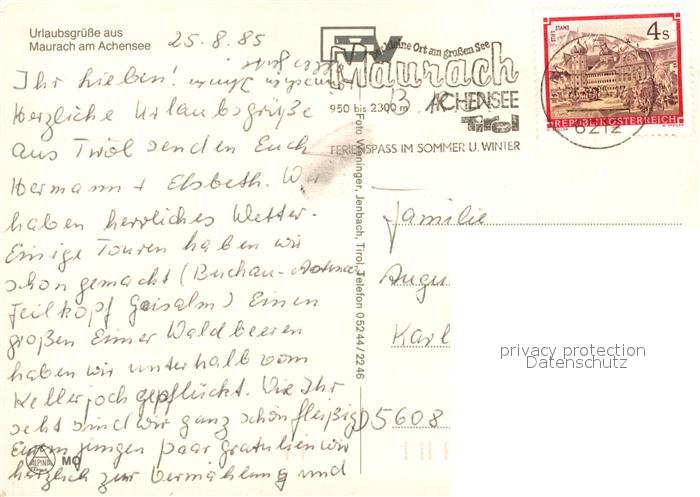 Urlaubsgrüße aus
Maurach am Achensee
25.8.85
Ihr Lieben!
Herzliche Urlaubsgrüße
aus Tirol senden Euch
Hermann + Elsbeth. Wir
haben herrliches Wetter.
Einige Touren haben wir
schon gemacht (Buchau-
Feilkopf Gaisalm) Einen
großen Eimer Waldbeeren
haben wir unterhalb vom
Kellerjoch gepflückt. Wie Ihr
seht sind wir ganz schön fleißig
Eurem jungen Paar gratulieren wir
herzlich zur Vermählung und
ALPINA
MO
Foto Weninger, Jenbach, Tirol, Telefon 05244/2246
FVV
Der kleine Ort am großen See
Maurach
950 bis 2300 m
ACHENSEE
Tirol
FERIENSPASS IM SOMMER U. WINTER
STIFT STAMS
4 S
REPUBLIK ÖSTERREICH
6212
Familie
Augu
Karl
D5608
privacy protection
Datenschutz